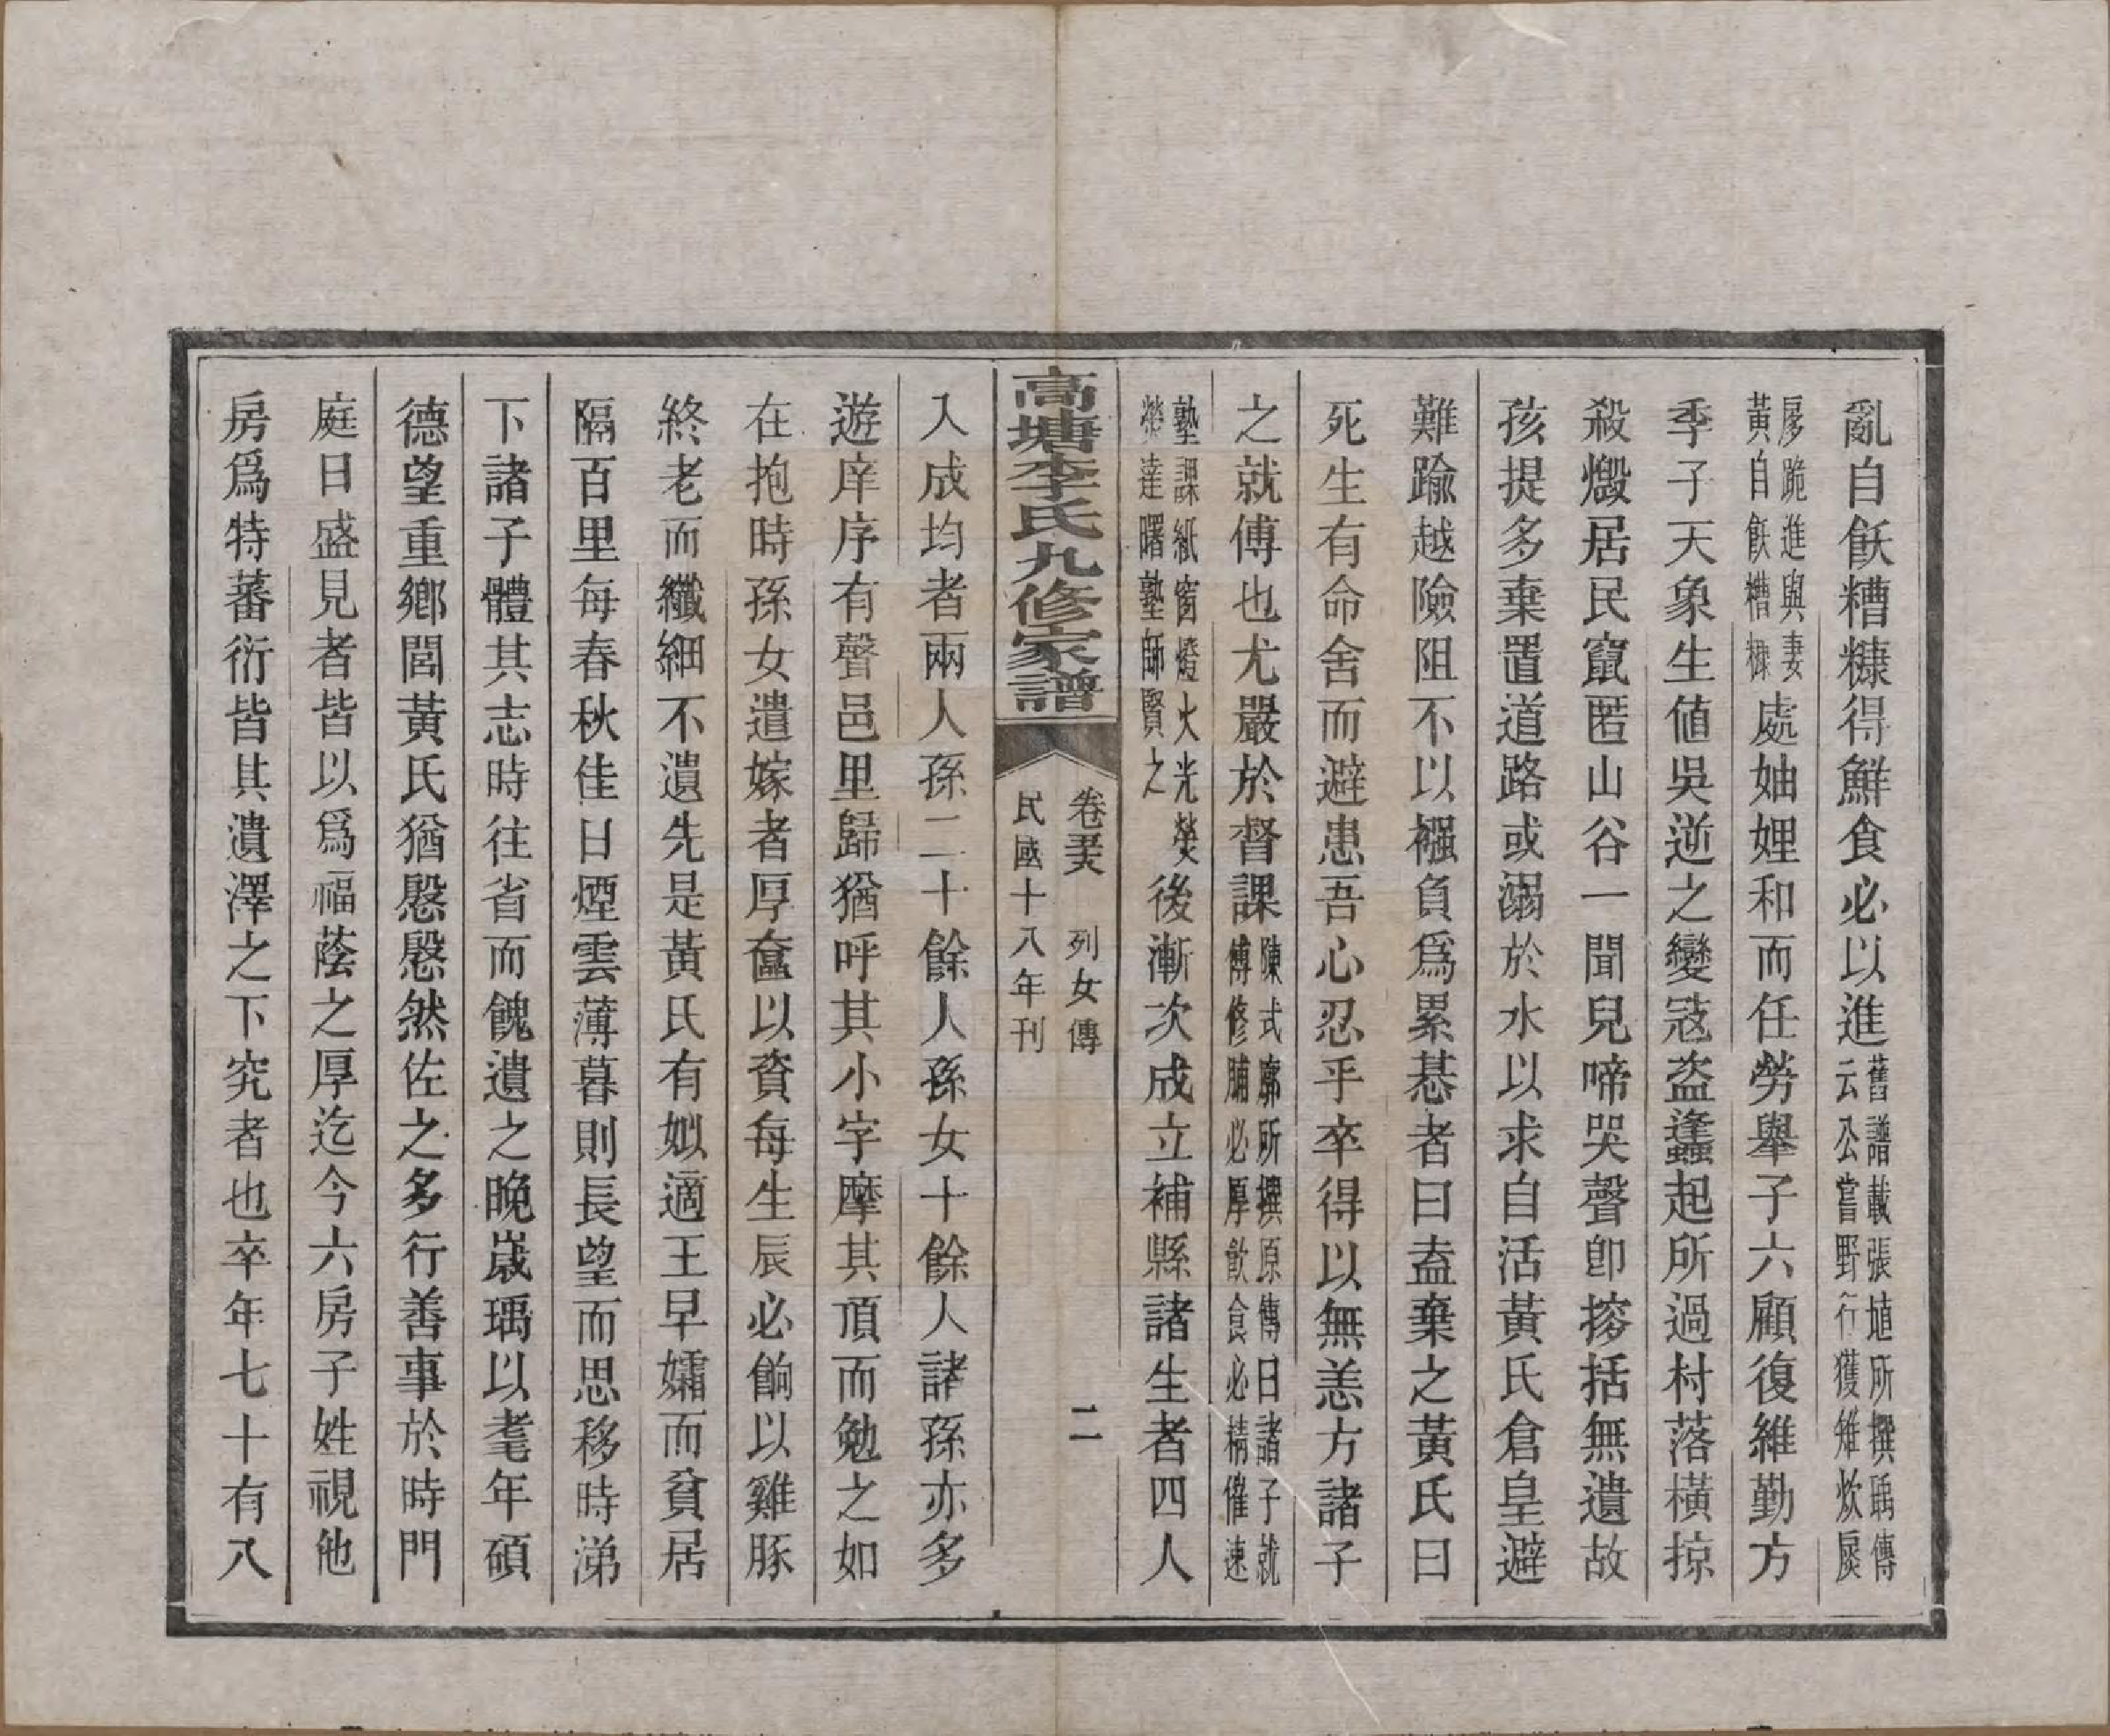 亂自飫糟糠得鮮食必以進舊譜載張埴所撰瑀傳云公嘗野行獲雉炊扊
扅跪進與妻黃自飫糟糠處妯娌和而任勞舉子六顧復維勤方
季子天象生値吳逆之變寇盜蠭起所過村落橫掠
殺燬居民竄匿山谷一聞兒啼哭聲卽搒括無遺故
孩提多棄置道路或溺於水以求自活黃氏倉皇避
難踰越險阻不以襁負爲累惎者曰盍棄之黃氏曰
死生有命舍而避患吾心忍乎卒得以無恙方諸子
之就傅也尤嚴於督課陳式廓所撰原傳曰諸子就傅修脯必厚飮食必精催速
塾課紙窗燈火光熒熒達曙塾師賢之後漸次成立補縣諸生者四人
高塘李氏九修家譜
卷 列女傳
二
民國十八年刊
入成均者兩人孫二十餘人孫女十餘人諸孫亦多
遊庠序有聲邑里歸猶呼其小字摩其頂而勉之如
在抱時孫女遣嫁者厚奩以資每生辰必餉以雞豚
終老而纖細不遺先是黃氏有姒適王早孀而貧居
隔百里每春秋佳日煙雲薄暮則長望而思移時涕
下諸子體其志時往省而餽遺之晚歲瑀以耄年碩
德望重鄉閭黃氏猶慇慇然佐之多行善事於時門
庭日盛見者皆以爲福蔭之厚迄今六房子姓視他
房爲特蕃衍皆其遺澤之下究者也卒年七十有八